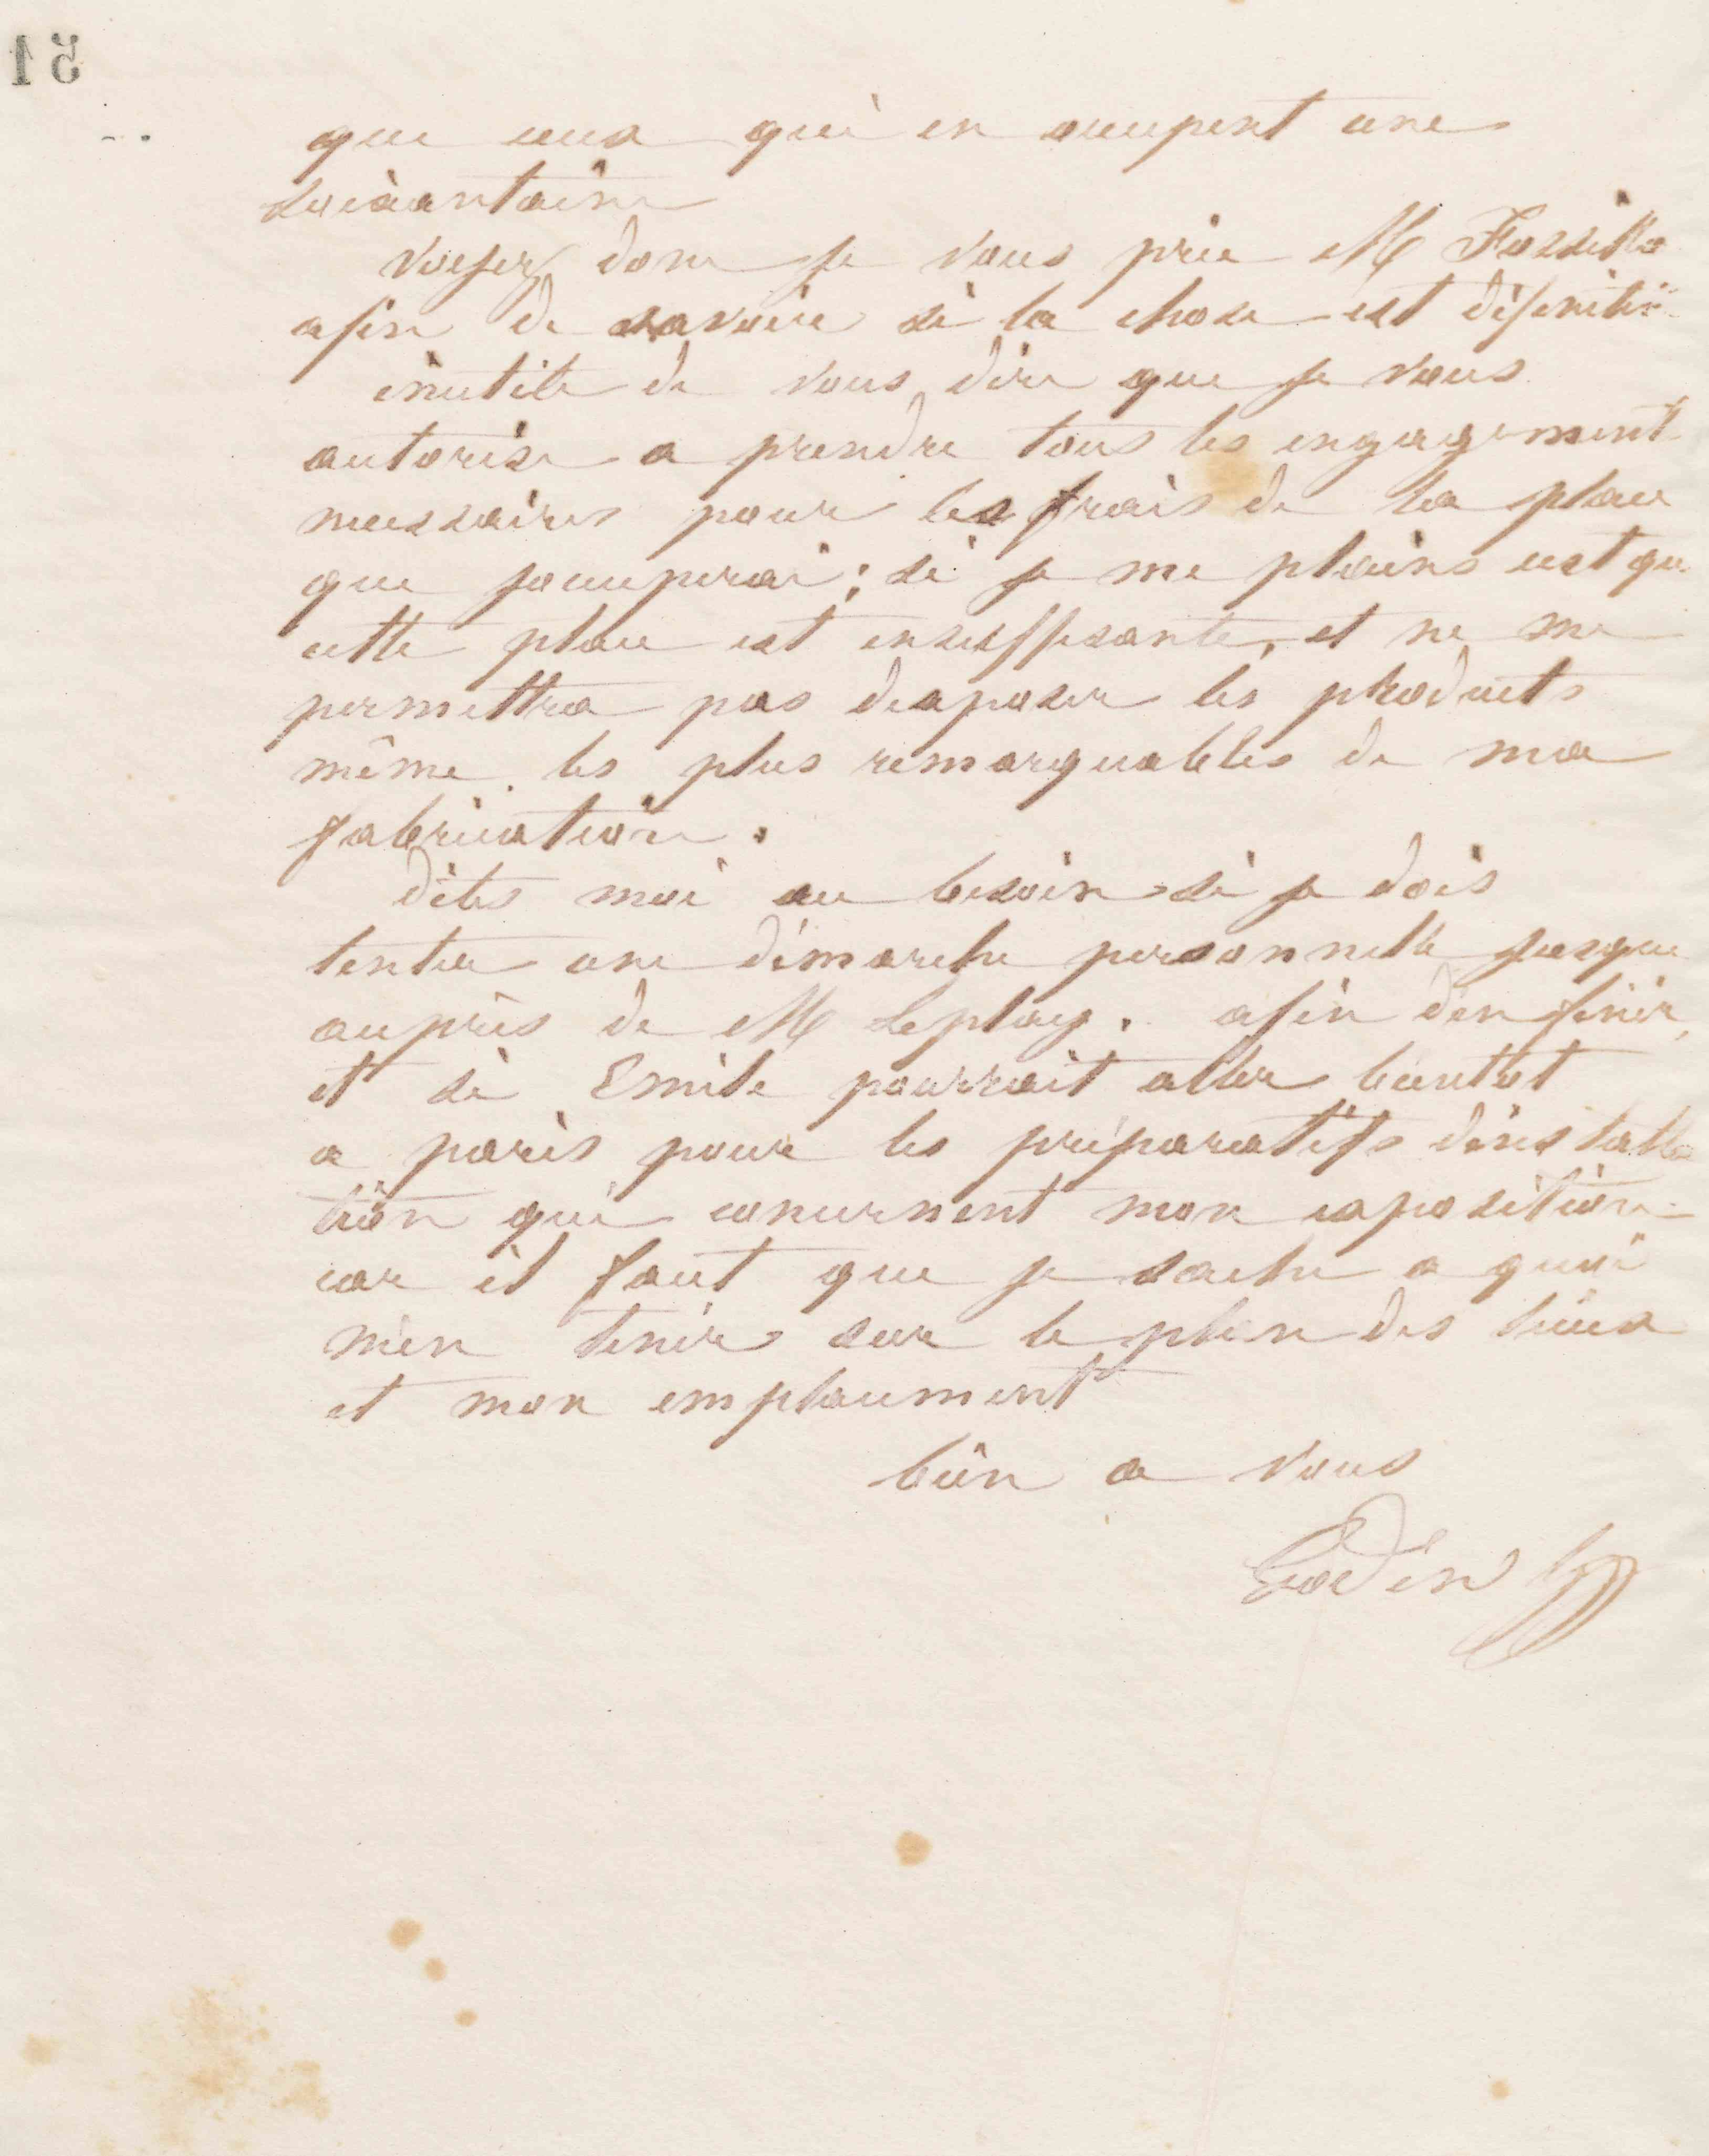 51
que ceux qui en occupent une
soixantaine
voyez donc je vous prie M
afin de savoir si la chose est définitiv
inutile de vous dire que je vous
autorise a prendre tous les engagement
necessaires pour les frais de la place
que joccuperai ; si je me plains cest que
cette place est insuffisante, et ne me
permettra pas dexposer les produits
même les plus remarquables de ma
fabrication .
dites moi au besoin si je dois
tenter une démarche personnelle jusque
auprès de M Leplay . afin den finir,
et si Emile pourrait aller bientot
a paris pour les préparatifs dinstalla
tion qui concernent mon exposition
car il faut que je sache a quoi
men tenir sur le plan des lieux
et mon emplacement
bien a vous
Godin